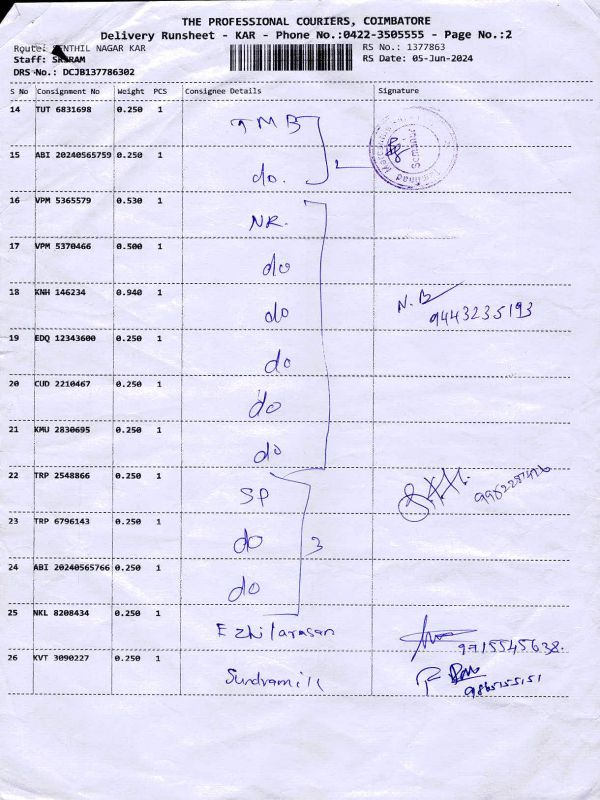 THE PROFESSIONAL COURIERS, COIMBATORE
Delivery Runsheet - KAR - Phone No.:0422-3505555 - Page No.:2
Route: SENTHIL NAGAR KAR
RS No.: 1377863
Staff: SRIRAM
RS Date: 05-Jun-2024
DRS No.: DCJB137786302
S No Consignment No Weight PCS Consignee Details Signature
14 TUT 6831698 0.250 1 TMB
15 ABI 20240565759 0.250 1 do.
16 VPM 5365579 0.530 1 NR.
17 VPM 5370466 0.500 1 do
18 KNH 146234 0.940 1 do N.B 9443235193
19 EDQ 12343600 0.250 1 do
20 CUD 2210467 0.250 1 do
21 KMU 2830695 0.250 1 do
22 TRP 2548866 0.250 1 SP
23 TRP 6796143 0.250 1 do 3
24 ABI 20240565766 0.250 1 do
25 NKL 8208434 0.250 1 Ezhilarasan 9715545638.
26 KVT 3090227 0.250 1 Sundramill 9865155151